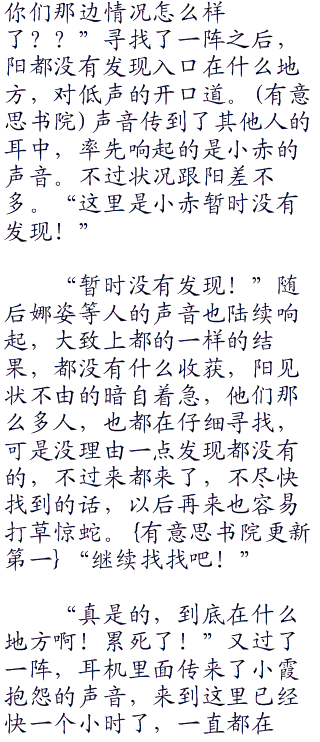 你们那边情况怎么样
了？？”寻找了一阵之后，
阳都没有发现入口在什么地
方，对低声的开口道。(有意
思书院)声音传到了其他人的
耳中，率先响起的是小赤的
声音。不过状况跟阳差不
多。“这里是小赤暂时没有
发现！”
“暂时没有发现！”随
后娜姿等人的声音也陆续响
起，大致上都的一样的结
果，都没有什么收获，阳见
状不由的暗自着急，他们那
么多人，也都在仔细寻找，
可是没理由一点发现都没有
的，不过来都来了，不尽快
找到的话，以后再来也容易
打草惊蛇。{有意思书院更新
第一}“继续找找吧！”
“真是的，到底在什么
地方啊！累死了！”又过了
一阵，耳机里面传来了小霞
抱怨的声音，来到这里已经
快一个小时了，一直都在